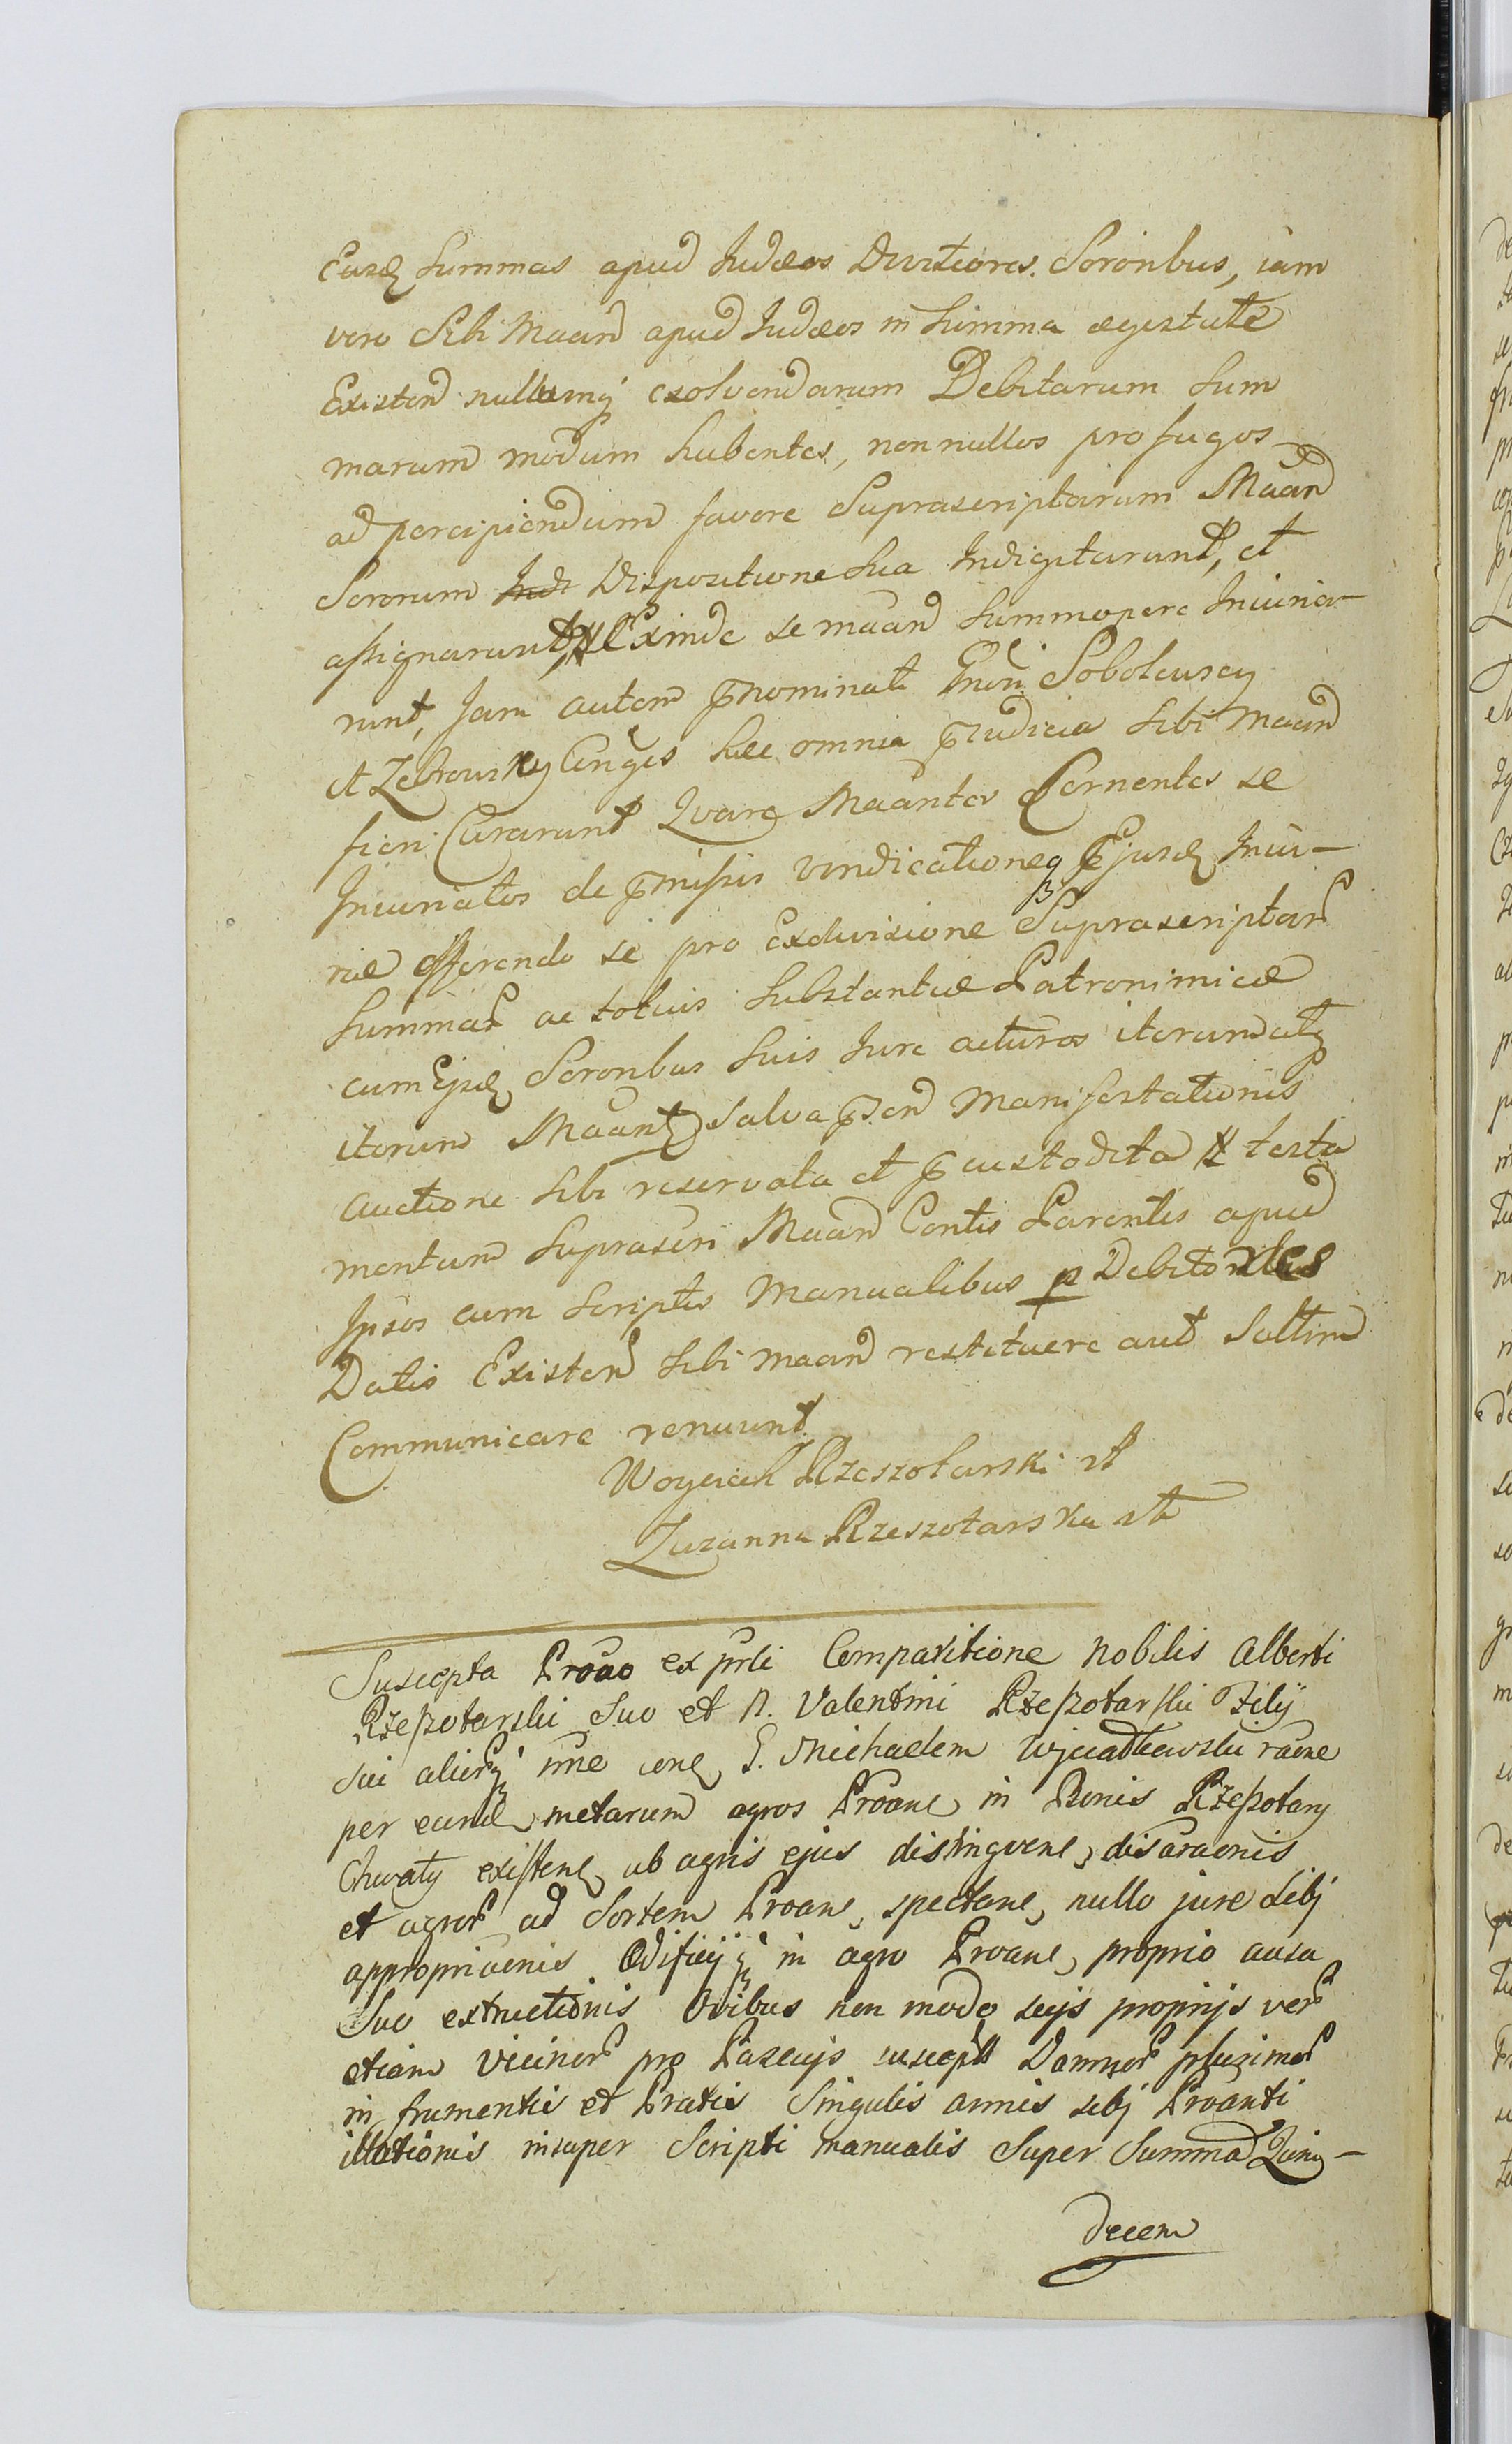 Eased Summas apud Judæos Divitiores Sororibus, iam
vero Sibi Maand apud Judæos in Summa ægestate
Existend nullumq exolvendarum Debitarum Sum
marum modum habentes, nonnullos profugos
ad percipiendum favore Suprascriptarum Maand
Sororum Dispositione Sua Indigitarunt, et
assignarunt, Exinde se maand Summopere Iniuria-
runt, Jam autem pnominati Gnosi Sobolewscy
et Zebrowscy Coniges hæc omnia pjudicia Sibi maand
fieri Curarunt Quare Maantes Cernentes se
Iniuriatos de pmissis vindicationeq Ejusd Iniu-
riæ offerendo se pro Exdivisione Suprascriptar
Summar ac totius Substantiæ Patronimicæ
cum Ejusd Sororibus Suis Jure acturos iterum atq
iterum Maant Salva psend Manifestationis
auctione Sibi reservata et p custodita testa
mentum Suprascri Maand Contis Parentis apud
Ipsos cum Scriptis Manualibus p Debitores
Datis Existend Sibi maand restituere aut Saltim
Communicare renuunt.
Woyciech Rzeszotarski
Zuzanna Rzeszotarska
Suscepta Proao ex prli Comparitione Nobilis Alberti
Rzeszotarski Suo et N. Valentini Rzeszotarski Filij
sui aliorq nne G. Michaelem raone
per eund metarum agros Proane in Bonis Rzeszotary
Chwaty existene ab agris ejus distingvene,
et agror ad Sortem Proane, spectane, nullo jure Sibj
appropriaonis Ædificijq in agro Proane, proprio ausu
Suo extructionis Ovibus non modo suis proprijs ver
etiam Vicinor pro Pascuis susceptis Damnor plurimor
in frumentis et Pratis Singulis annis sibj Proanti
illationis insuper Scripti manualis Super Summa Quin-
decem